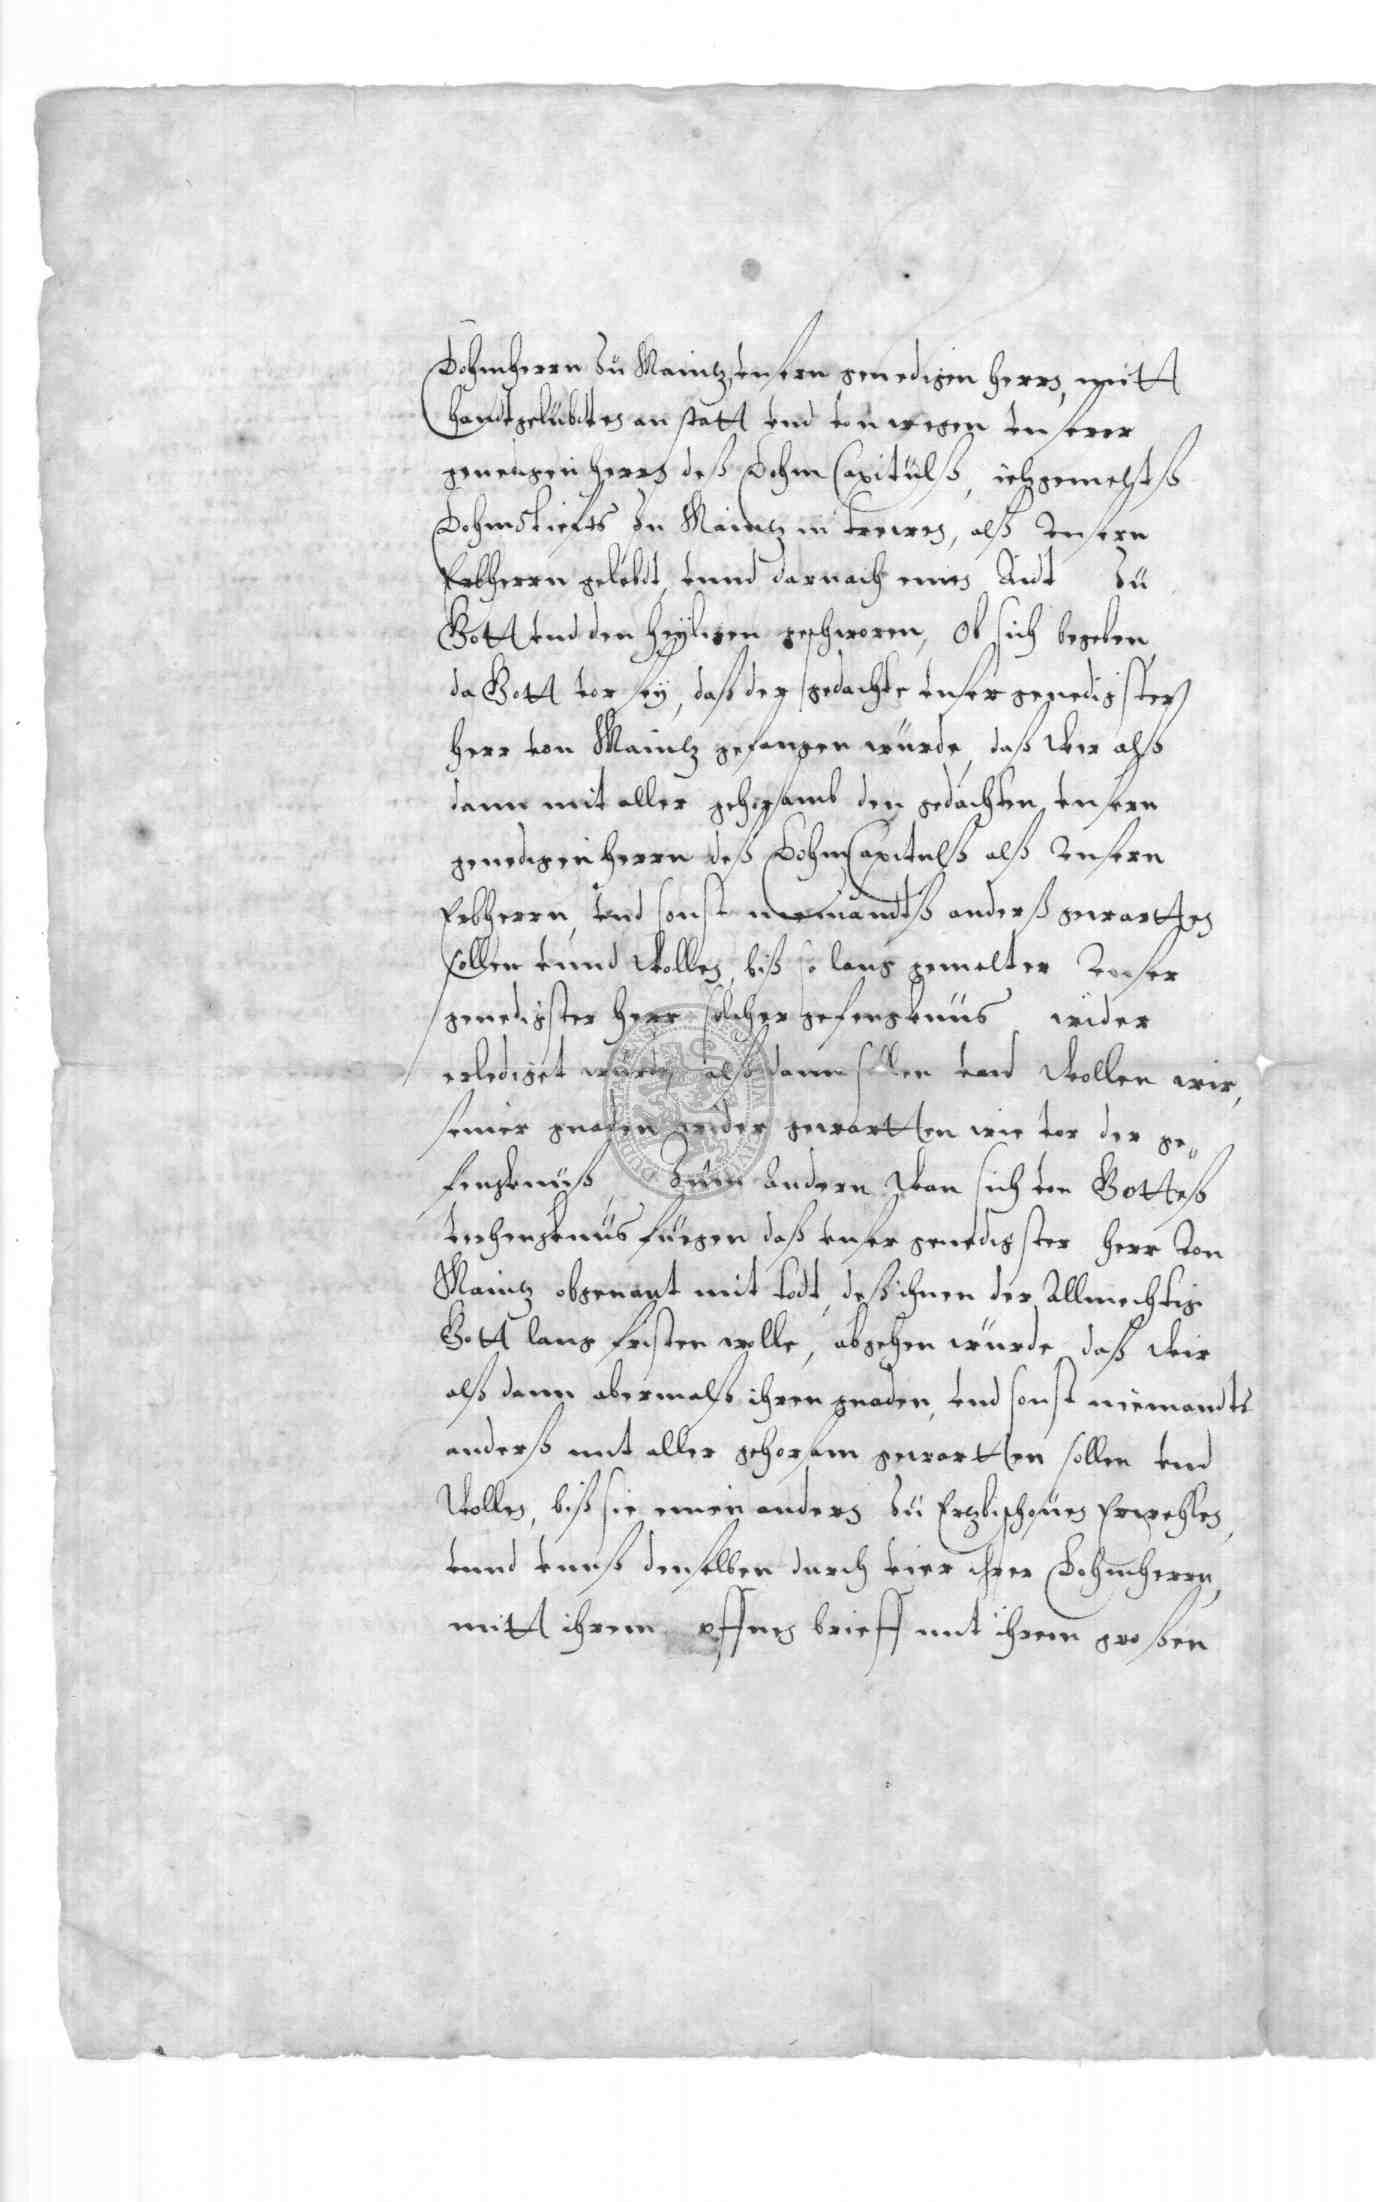 Dohmherrn zu Maintz, unsern genedigen herrn, mitt
handtgelübdten an statt und von wegen unserer
genedigen herrn deß Dohm Capitülß, ietzgemeltß
Dohmstiefts zu Maintz in trewen, alß unsern
Erbherrn gelobdt, unnd darnach einen Aidt zu
Gott und den heyligen geschworen, Ob sich begeben,
da Gott vor sey, daß der gedachte unser genedigster
herr von Maintz gefangen würde, daß wir alß
dann mit aller gehorsamb den gedachten unsern
genedigen herrn deß Dohm Capitulß alß unsern
Erbherrn, und sonst niemandtß anderß gewartten
sollen unnd wollen, biß so lang gemelter unser
genedigster herr solcher gefengknüs wider
erlediget würde, alß dann sollen und wollen wir,
seiner gnaden wider gewartten wie vor der ge„
fengknüß, Zum Andern wan sich von Gotteß
verhengknüs füegen daß unser genedigster herr von
Maintz obgenant mit todt, deß ihnen der Allmechtig
Gott lang fristen wolle, abgehen würde, daß wir
alß dann abermalß ihren gnaden, und sonst niemandts
anderß mit aller gehorsam gewartten sollen und
wollen, biß sie einen andern zu Ertzbischoüen Erwehlen,
unnd unnß denselben durch vier ihrer Dohmherrn,
mitt ihrem offnen brieff mit ihrem großen